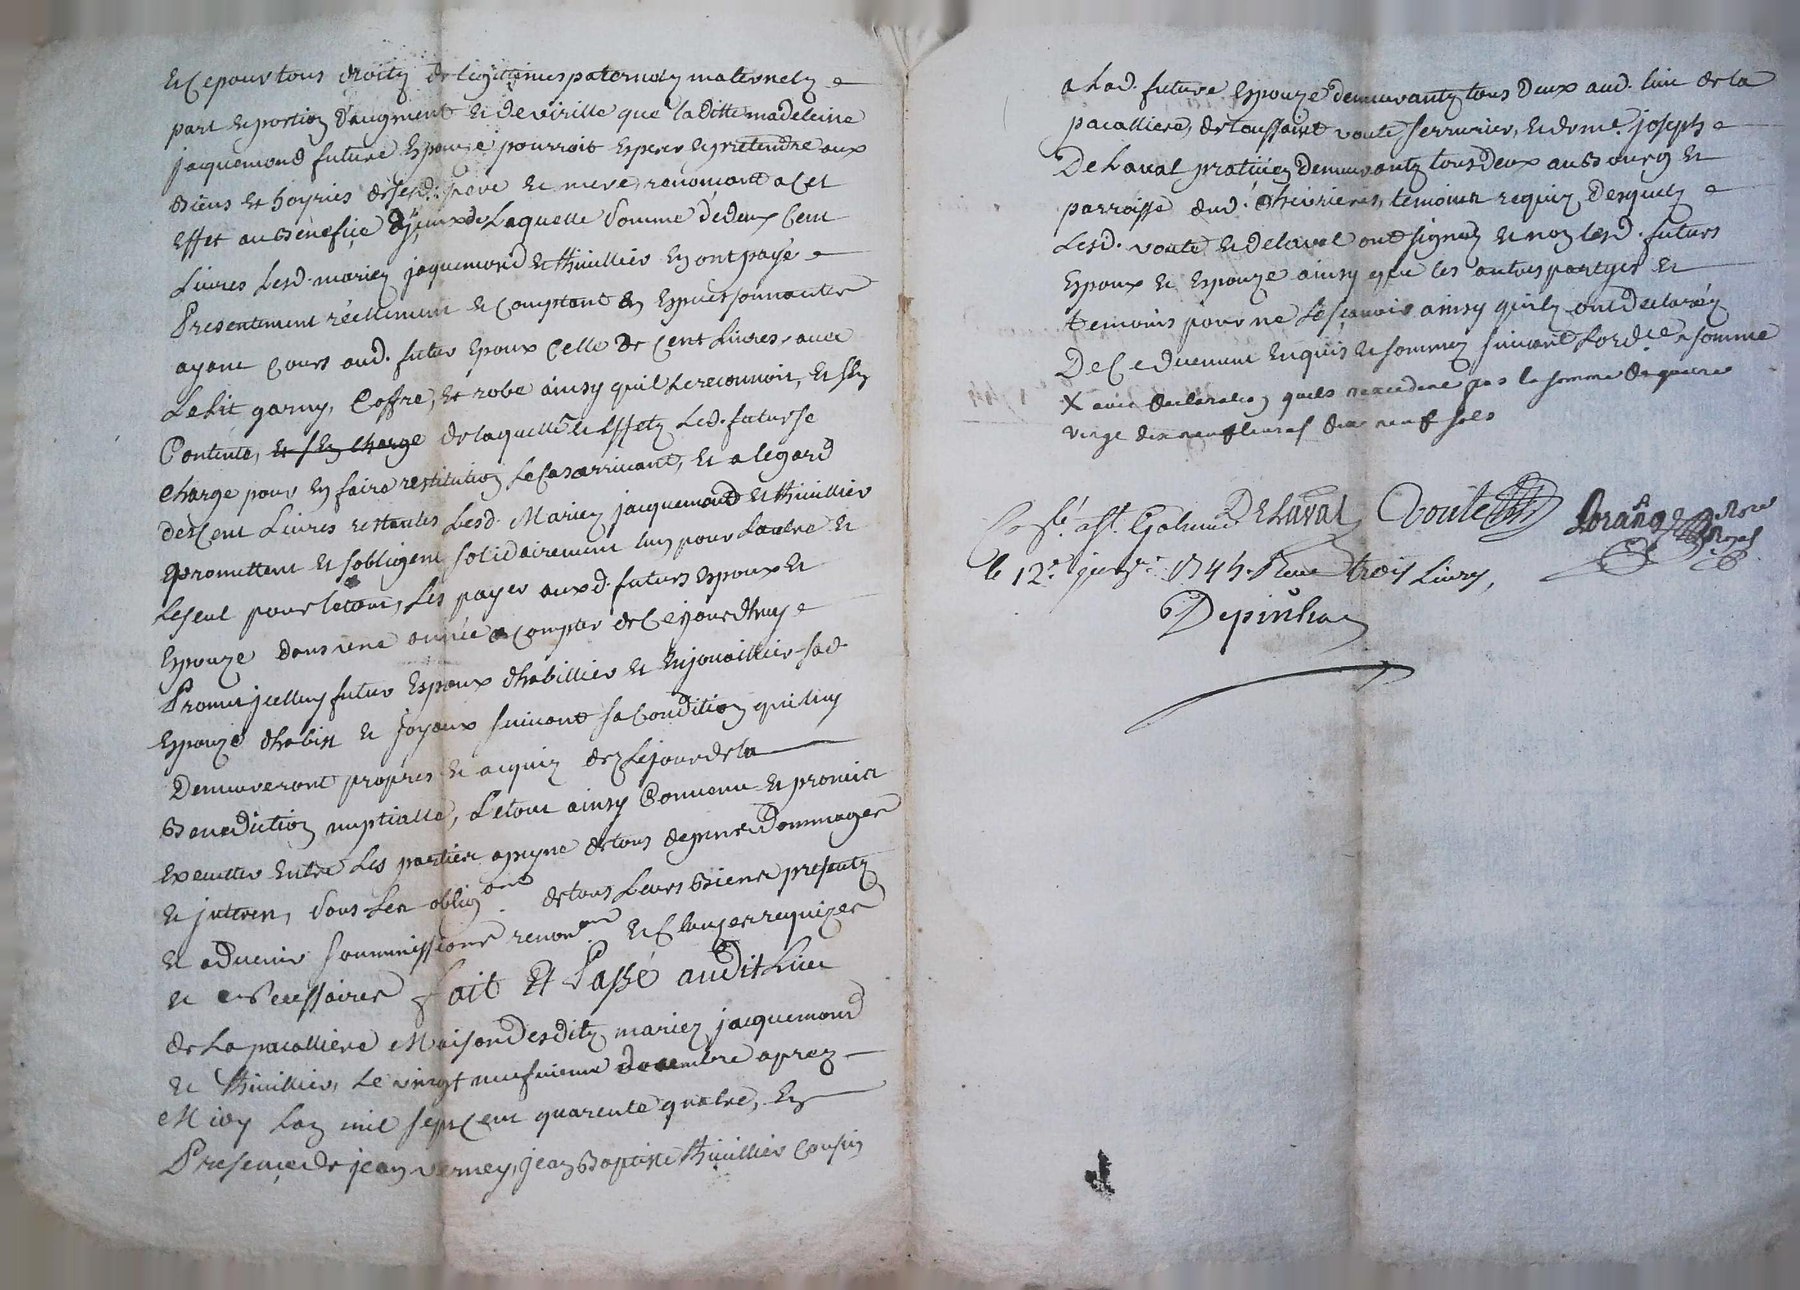 Et Ce pour tous droitz de legitimes paternelz maternelz
part et portion daugment et de virille que laditte madeleine
jacquemond future Espouze pourroit Esperer et pretendre aux
Biens et hoyries desesd. pere et mere renoncant a Cet
Effet au Benefice djceux de Laquelle Somme de deux Cent
Livres Lesd. mariez jaquemond et thuillier En ont payé
Presentement réellement et Comptant En Espesses sonnantes
ayant Cours aud. futur Epoux Celle de Cent Livres, avec
Le Lit garny, Coffre, et robe ainsy quil Le reconnoit, Et s'En
Contente, et s'En charge de laquelle et Effetz Led. futur se
Charge pour En faire restitution Le Cas arrivant, Et a legard
des Cent Livres restantes Lesd. Mariez jacquemond et thuillier
promettent et sobligent solidairement lun pour Lautre et
Le seul pour letout, Les payer auxd. futurs Espoux et
Espouze dans une année a compter de Ce jourdhuy
Promet jcelluy futur Espoux dhabillier et Enjouaillier sad.
Espouze dhabist et joyaux suivant sa Condition qui luy
Demeureront propres et acquiz dez Le jour de la
Benediction nuptialle, Letout ainsy Convenu et promis
Executter Entre Les parties apeyne de tous depens Dommages
et jnterez, Sous Les obligõns de tous Leurs Biens presentz
et advenir soummissions renonõns et Clauzes requizes
et necessaires fait Et Passé audit Lieu
de La pacalliere Maison Desditz mariez jacquemond
et thuillier, Le vingt neufvieme decembre aprez
Midy Lan mil sept Cent quarente quatre, En
Presence de jean verney, jean Baptiste thuillier Cousin
a Lad. future Espouze demeurantz tous Deux aud. lieu de la
pacalliere, de toussaint voute serrurier, et de me. joseph
De Laval praticien Demeurantz tous Deux au Bourg et
parroisse dud. Chivrieres, temoins requiz Desquelz
Lesd. voute et delaval ont signez et non lesd. futurs
Espoux et Espouze ainsy que les autres partyes et
temoins pour ne Le sçavoir ainsy quilz ont declaréz
De Ce duement Enquis et sommez suivant Lordce somme
X avec declaration quels nexcedent pas la somme de quatre
vingt dix neuf livres dix neuf sols
DE Laval Voute Lorang Nore Royal
le 12e 1745. Receu trois Livres,